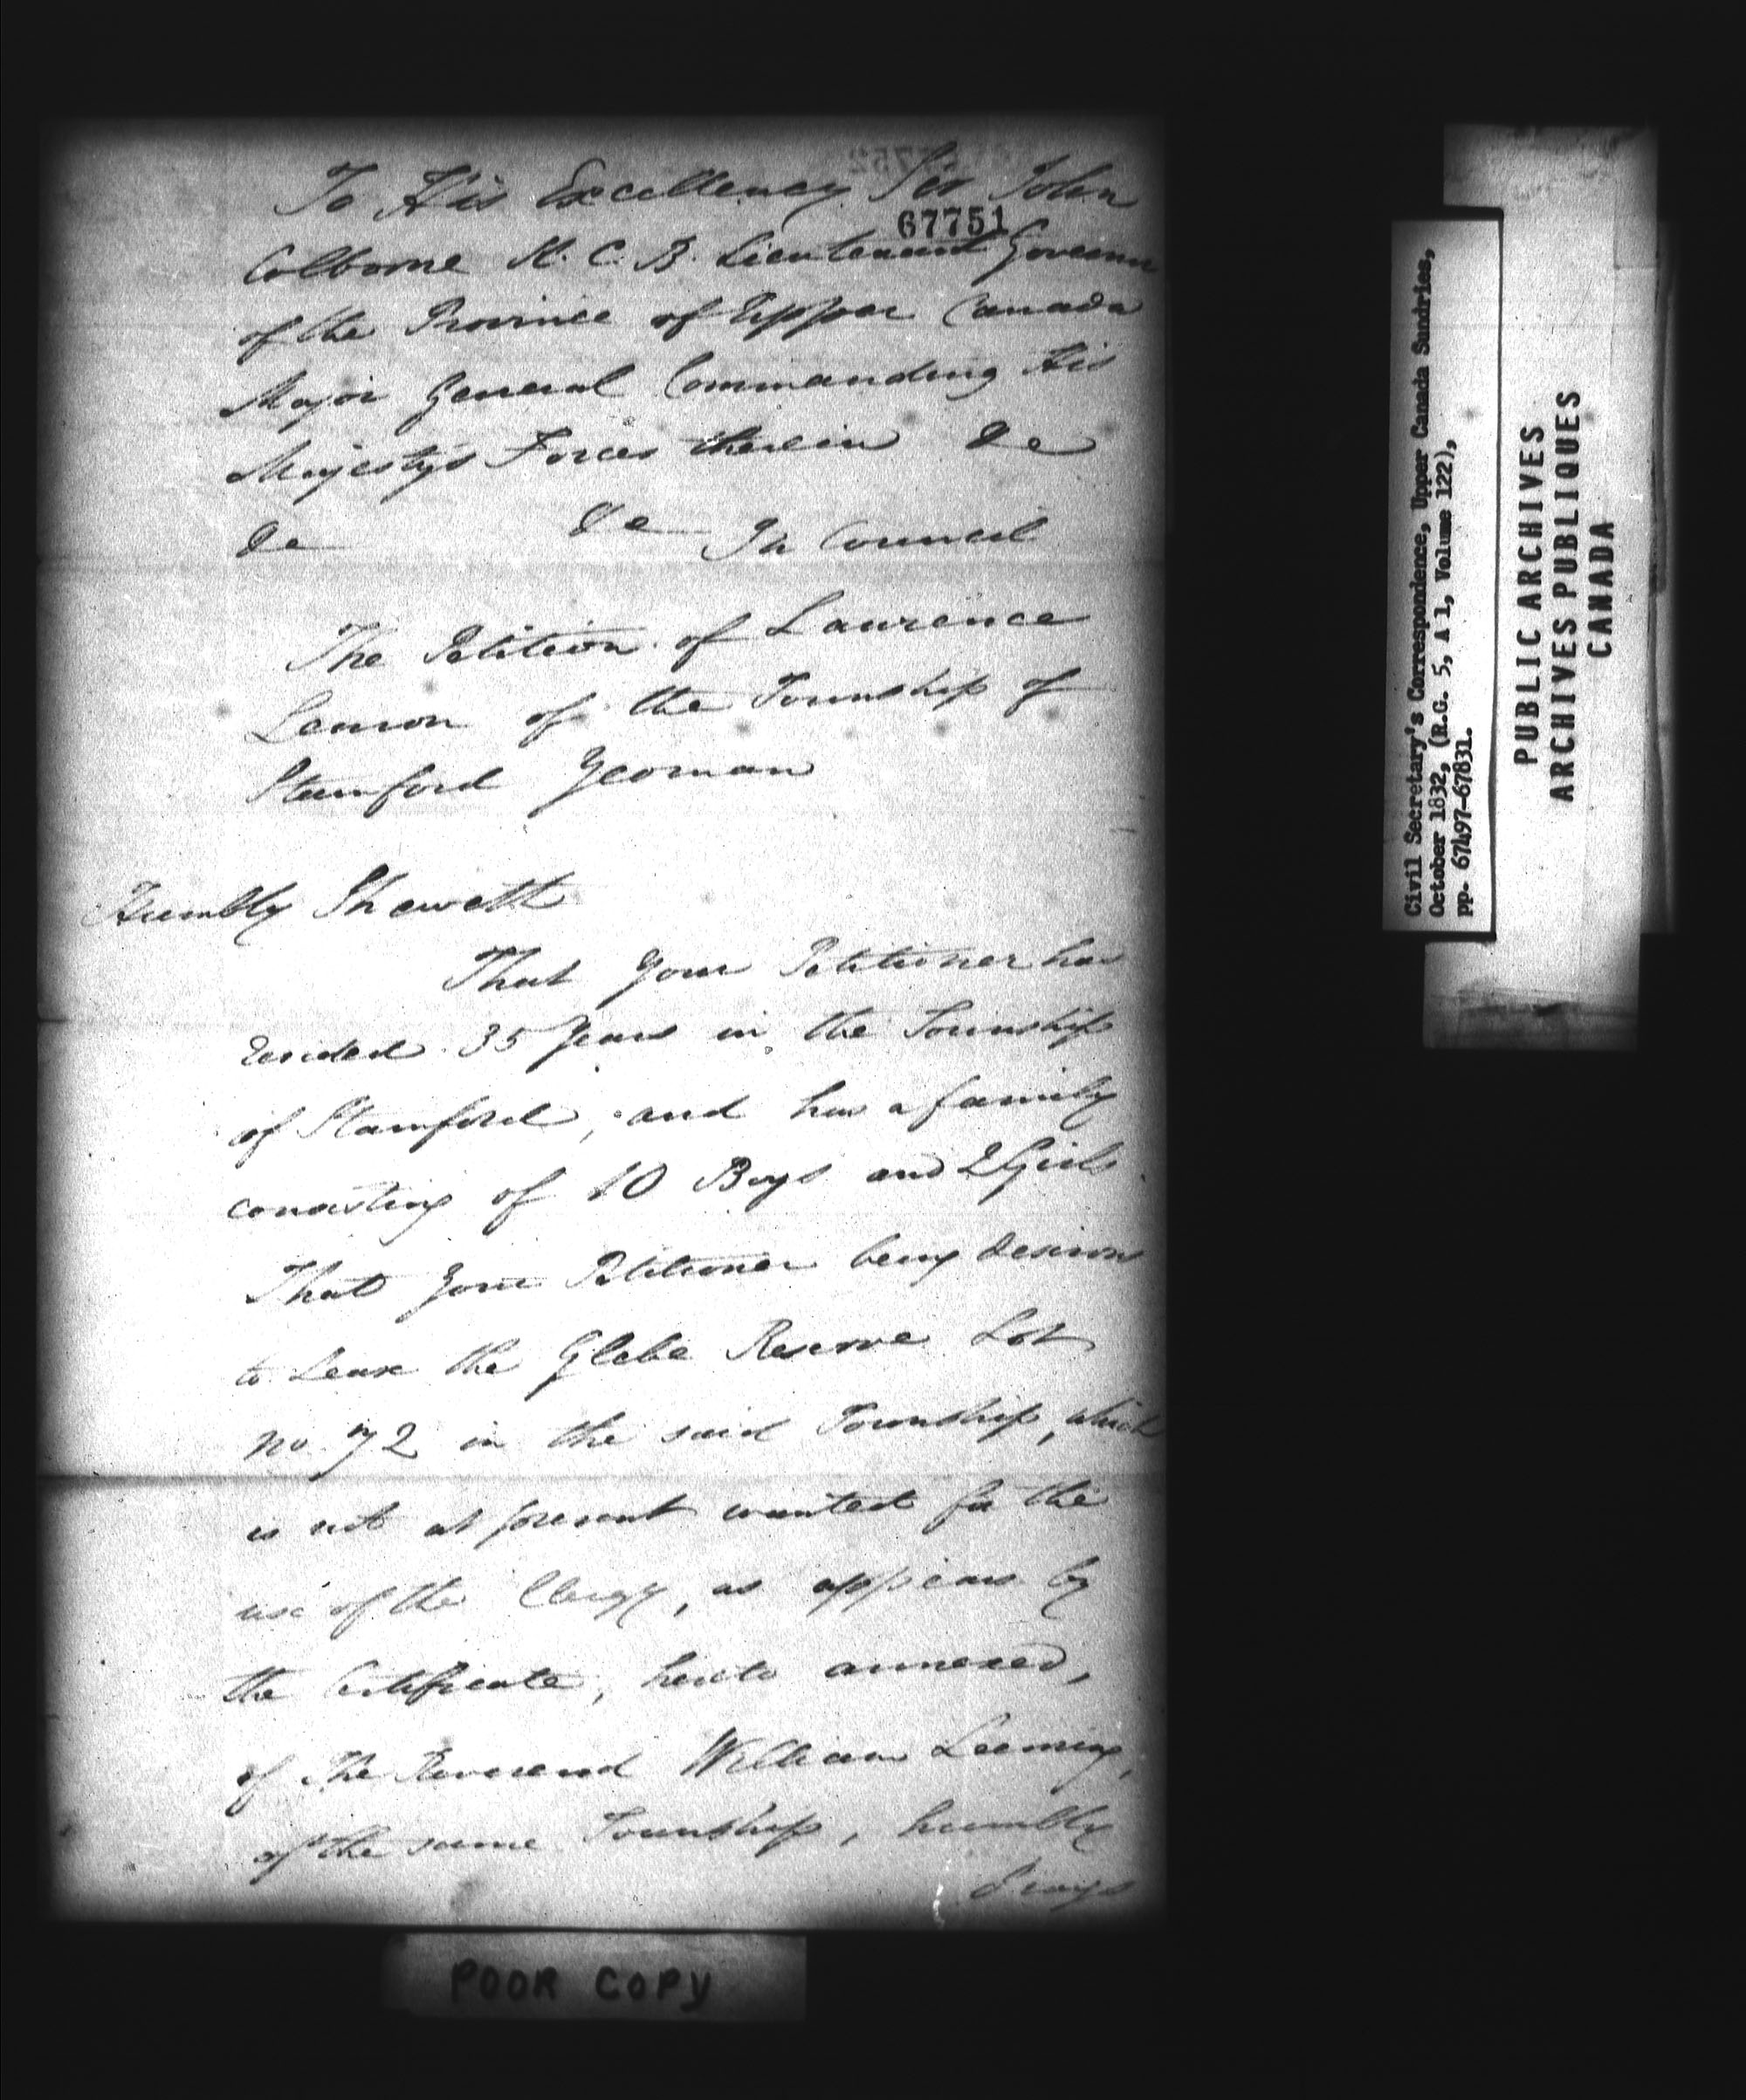 To His Excellency Sir John
67751
Colborne K. C. B. Lieutenant Governor
of the Province of Upper Canada
Major General Commanding His
Majesty's Forces therein &c
&c &c In Council
The Petition of Lawrence
Lemon of the Township of
Stamford Yeoman
Humbly Sheweth
That Your Petitioner has
resided 35 Years in the Township
of Stamford, and has a family
consisting of 10 Boys and 2 Girls
That Your Petitioner being desirous
to Lease the Glebe Reserve Lot
No 72 in the said Township, which
is not at present wanted for the
use of the Clergy, as appears by
the Certificate, hereto annexed,
of The Reverend William Leeming,
of the same Township, humbly
Prays
POOR COPY
Civil Secretary's Correspondence, Upper Canada Sundries,
October 1832, (R.G. 5, A 1, Volume 122),
pp. 67497-67831.
PUBLIC ARCHIVES
ARCHIVES PUBLIQUES
CANADA